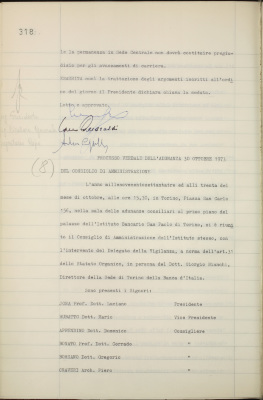 318
to la permanenza in Sede Centrale non dovrà costituire pregiu-
dizio per gli avanzamenti di carriera.
ESAURITA così la trattazione degli argomenti iscritti all'ordi-
ne del giorno il Presidente dichiara chiusa la seduta.
Letto e approvato.
(8)
PROCESSO VERBALE DELL'ADUNANZA 30 OTTOBRE 1971
DEL CONSIGLIO DI AMMINISTRAZIONE
L'anno millenovecentosettantuno ed alli trenta del
mese di ottobre, alle ore in Torino, Piazza San Carlo
156, nella sala delle adunanze consiliari al primo piano del
palazzo dell'Istituto Bancario San Paolo di Torino, si è riuni-
to il Consiglio di Amministrazione dell'Istituto stesso, con
l'intervento del Delegato della Vigilanza, a norma dell'art.
dello Statuto Organico, in persona del Dott. Giorgio
Direttore della Sede di Torino della Banca d'Italia.
Sono presenti i Signori:
JONA Prof. Dott. Luciano Presidente
Dott. Mario Vice Presidente
Dott. Domenico Consigliere
Prof. Dott. Corrado "
Dott. Gregorio "
Arch. Piero "